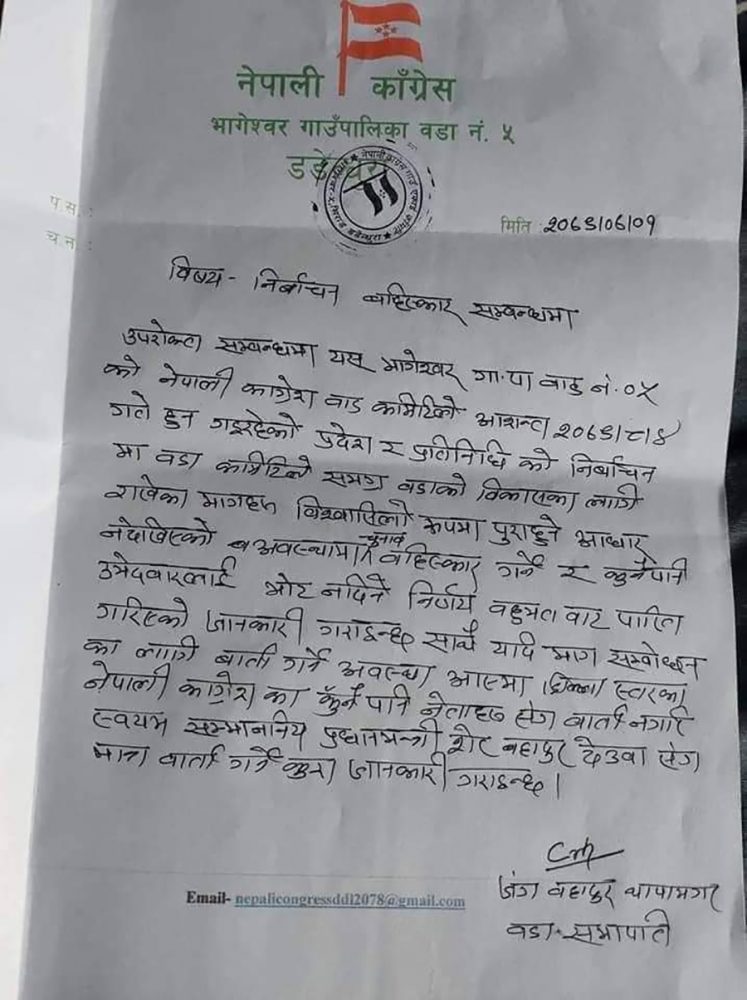 नेपाली काँग्रेस
भागेश्वर गाउँपालिका वडा नं. ५
प.स. :
च.न. :
मिति :२०७९/०६/०१
विषय - निर्वाचन बहिस्कार सम्बन्धमा
उपरोक्त सम्बन्धमा यस भागेश्वर गा.पा वाड नं.०५
को नेपाली काग्रेश वाड कमिटिले आशन्त २०७९/८/४
गते हुन गइरहेको प्रदेश र प्रतिनिधि को निर्वाचन
मा वडा कमिटिले समग्र वडाको विकासका लागी
राखेका मागहरु विश्वासिलो रूपमा पुराहुने आधार
नदेखिएको अवस्थामा चुनाव वहिस्कार गर्ने र कुनैपनि
उमेदवारलाई भोट नदिने निर्णय वहुमत वाट पारित
गरिएको जानकारी गराइन्छ साथै यदि माग सम्वोधन
का लागी वार्ता गर्ने अवस्था आएमा जिल्ला स्तरका
नेपाली काग्रेश का कुँनै पनि नेताहरु संग वार्ता नगरि
स्वयम सम्माननिय प्रधानमन्त्री शेर बहादुर देउवा संग
मात्र वार्ता गर्ने कुरा जानकारी गराइन्छ।
जंग वहादुर थापामगर
वडा-सभापति
Email- nepalicongressddl2078@gmail.com